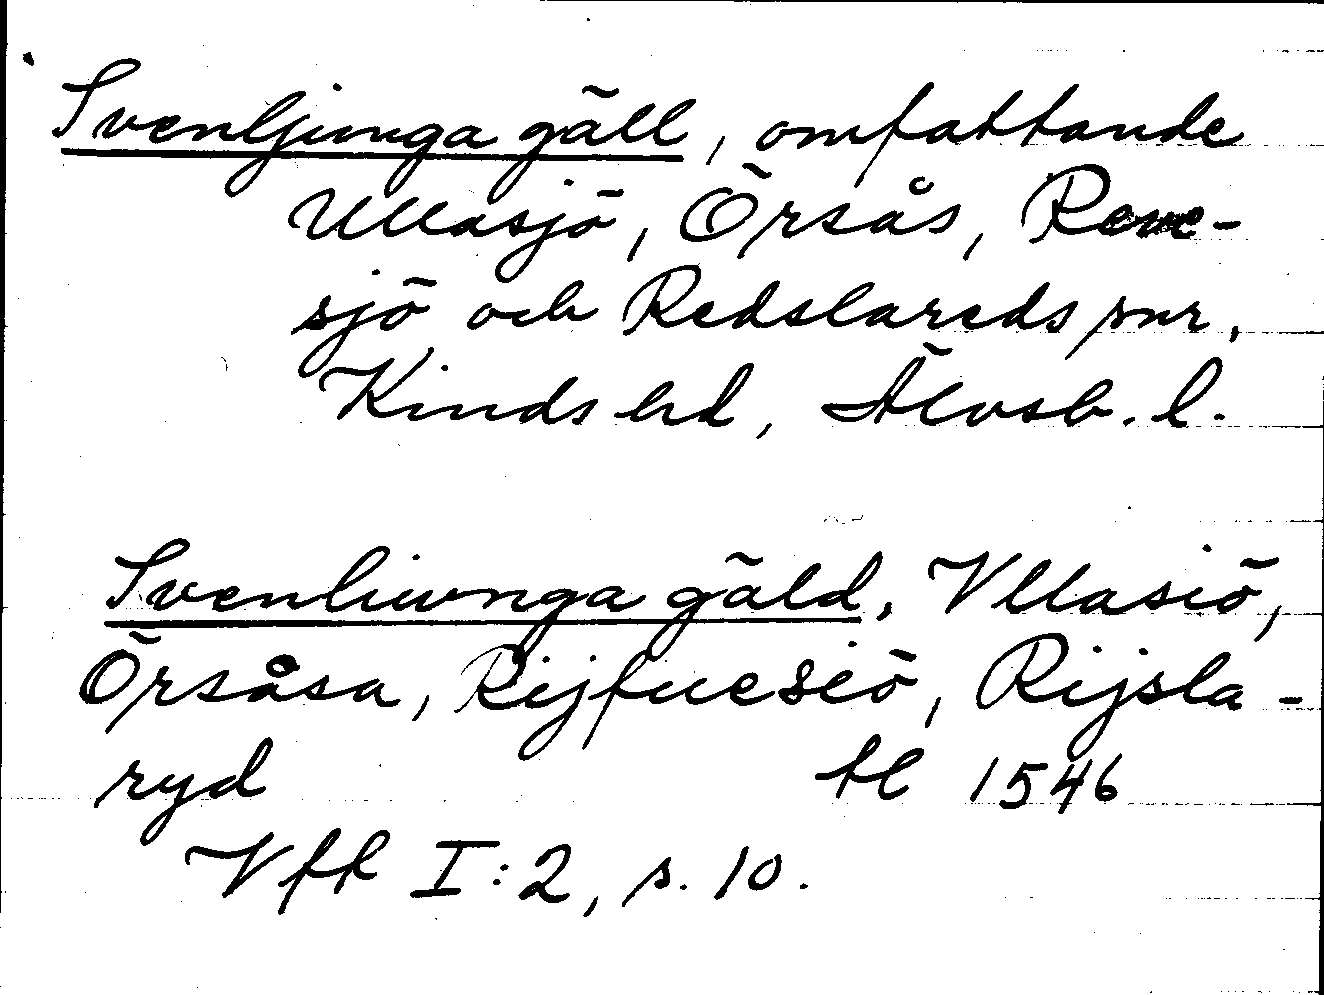 Svenljunga gäll, omfattande
Ullasjö, Örsås, Reve-
sjö och Redslareds snr,
Kinds hd, Älvsb. l.
Svenliunga gäld, Vllasiö,
Örsåsa, Rijfuesiö, Rijsla-
ryd tl 1546
Vfk I:2, s. 10.